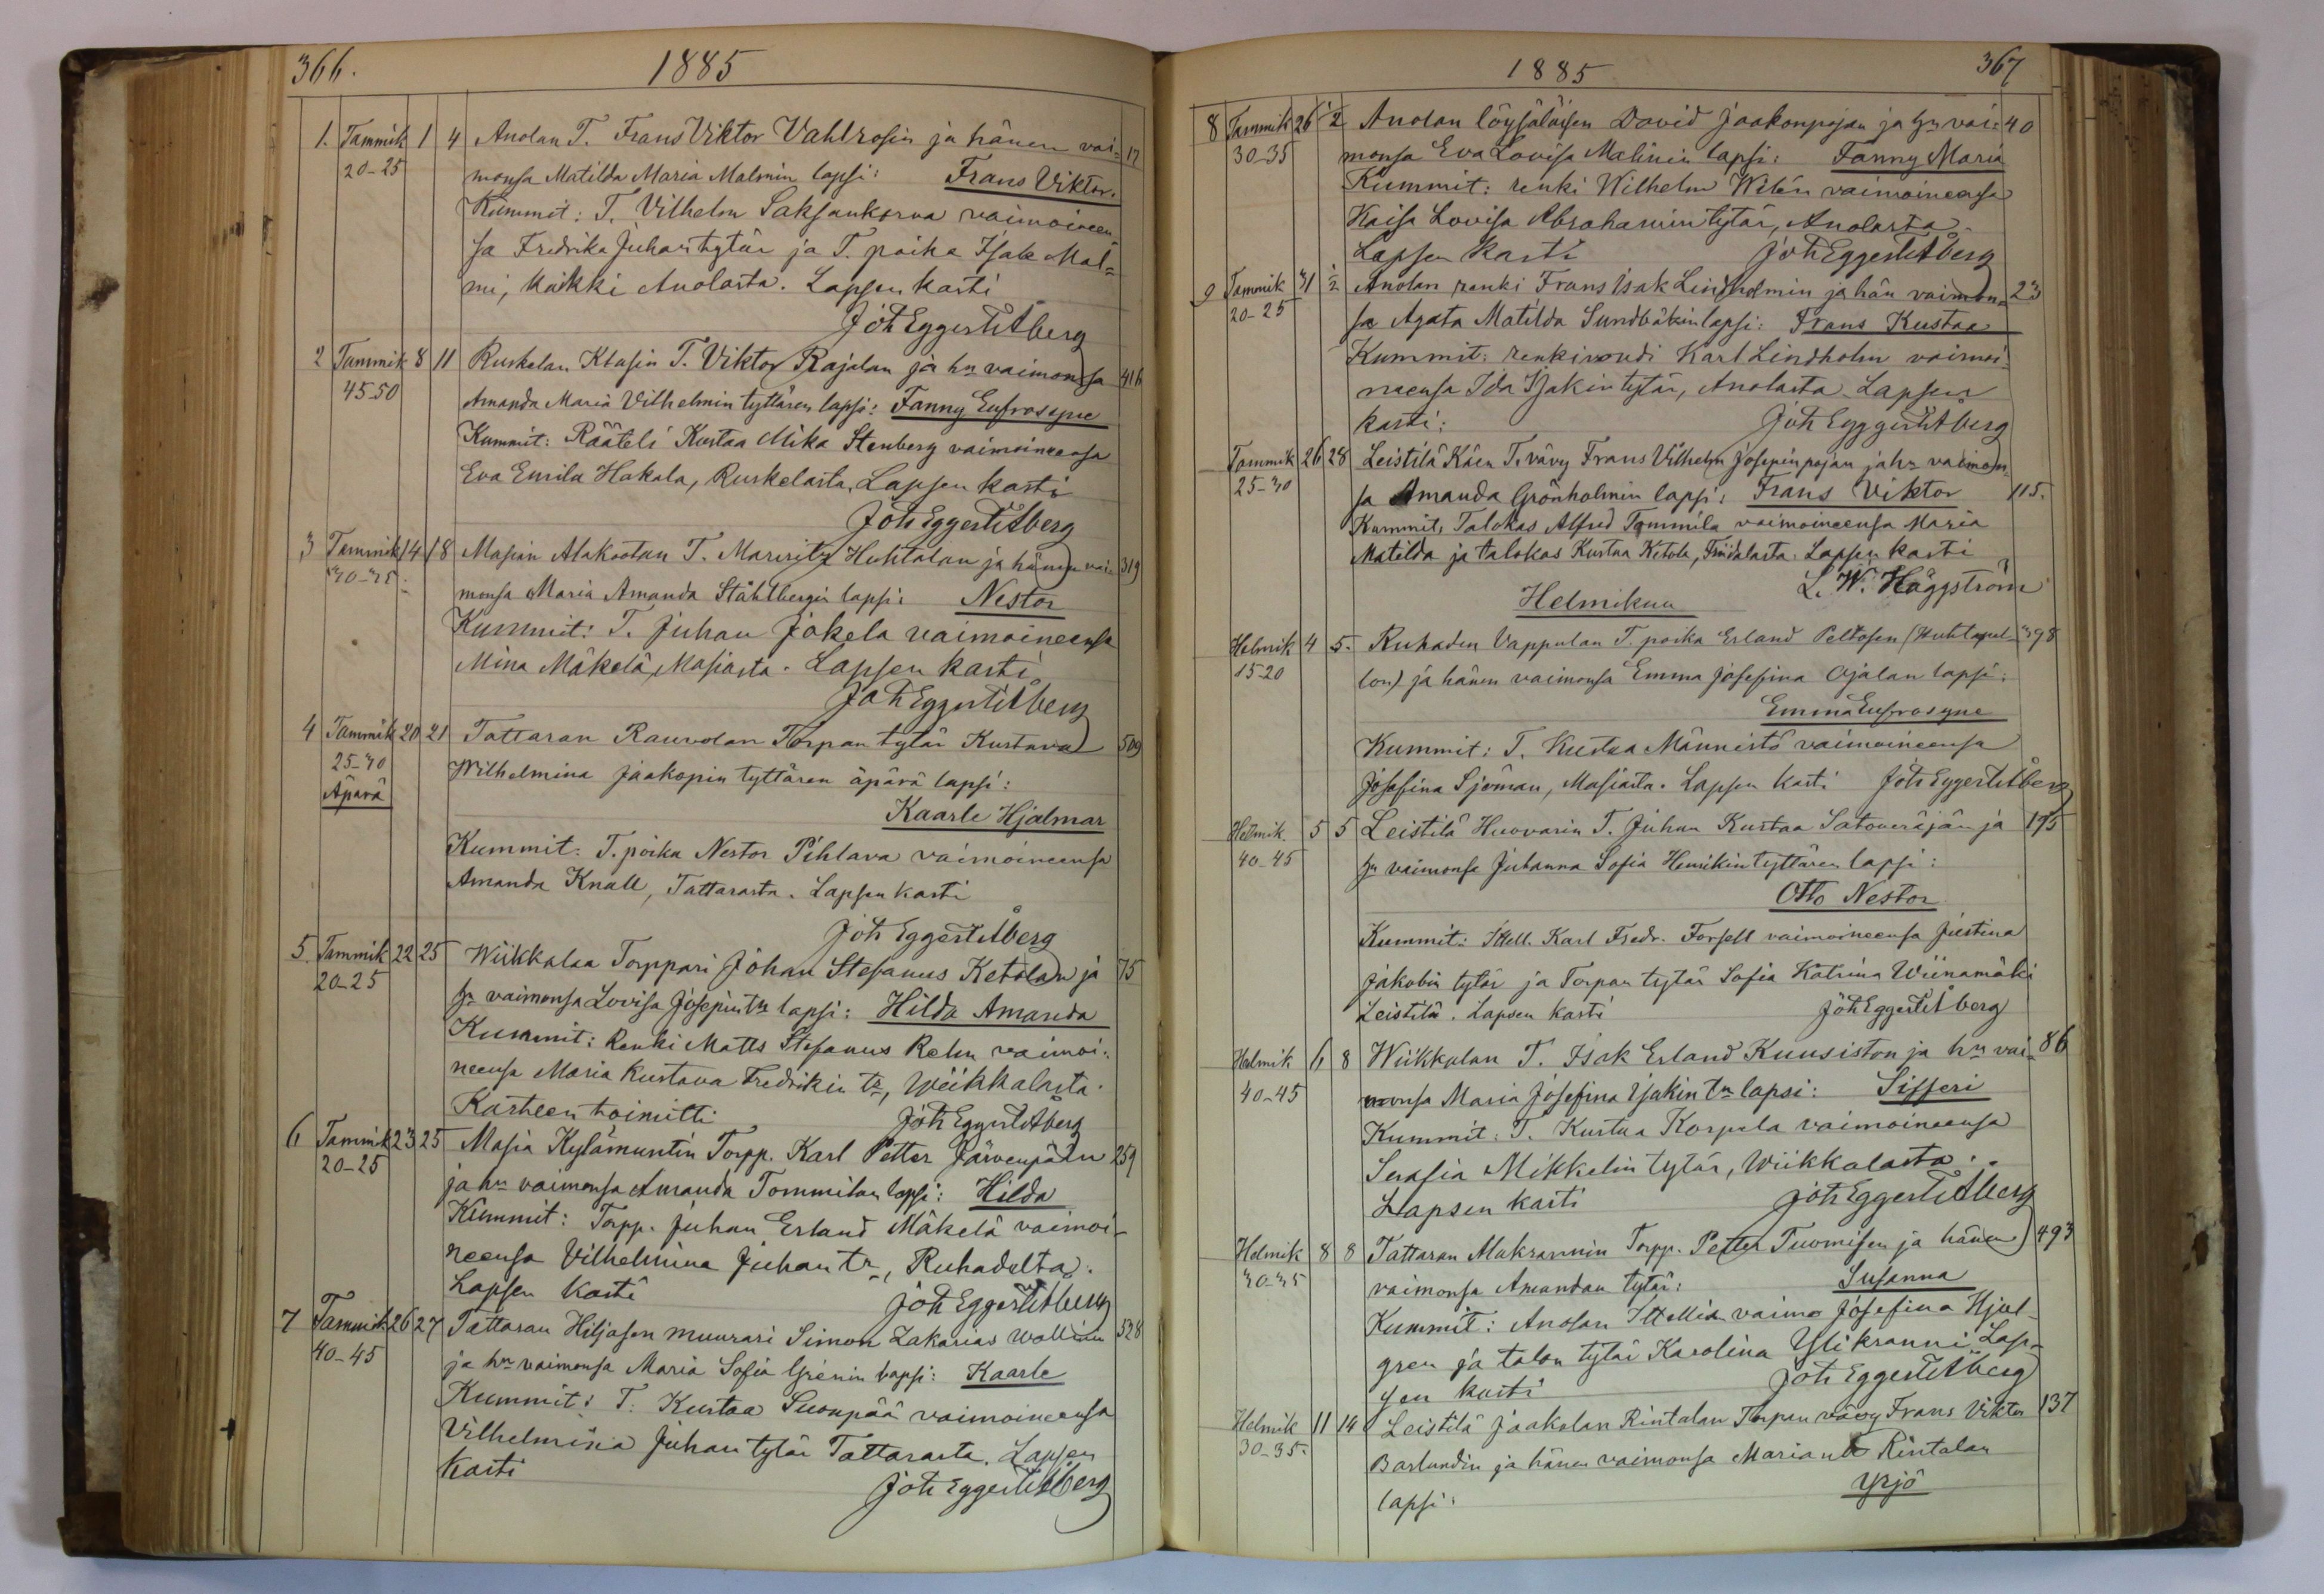 366.
1885
1. Tammik 1 4 Anolan T. Frans Viktor Vahlrosin ja hänen vai- 12
20-25 monsa Matilda Maria Malmin lapsi: Frans Viktor.
Kummit: T. Vilhelm Saksankorva vaimoineen
sa Fredrika Juhantytär ja T. poika Isak Mal=
mi, kaikki Anolasta. Lapsen kasti
Joh Eggert Åberg
2 Tammik 8 11 Ruskelan T. Viktor Rajalan ja hn vaimonsa 416
45-50 Amanda Maria Vilhelmin tyttären lapsi: Fanny Eufrosyne
Kummit: Rääteli Kustaa Mika Stenberg vaimoineensa
Eva Emila Hakala, Ruskelasta, Lapsen kasti
Joh Eggert Åberg
3 Tammik 14 18 Masian Alakootan T. Mauritz Huhtalan ja hänen vai- 319
30-35 monsa Maria Amanda Ståhlbergin lapsi: Nestor
Kummit: T. Juhan Jokela vaimoineensa
Mina Mäkelä, Masiasta. Lapsen kasti
Joh Eggert Åberg
4 Tammik 20 21 Tattaran Rauvolan Torpan tytär Kustava 509
25-30 Wilhelmina Jaakopin tyttären äpärä lapsi:
Äpärä
Kaarle Hjalmar
Kummit: T. poika Nestor Pihlava vaimoineensa
Amanda Knall, Tattarasta. Lapsen kasti
Joh Eggert Åberg
5. Tammik 22 25 Wiikkalan Torppari Johan Stefanus Ketolan ja 75
20-25 hn vaimonsa Lovisa Josepin tn lapsi: Hilda Amanda
Kummit: Renki Matts Stefanus Rehn vaimoi=
neensa Maria Kustava Fredrikin tr, Wiikkalasta.
Kasteen toimitti Joh Eggert Åberg
6 Tammik 23 25 Masia Kylämuntin Torpp. Karl Petter Järvenpään 259
20-25 ja hn vaimonsa Amanda Tommilan lapsi: Hilda
Kummit: Torpp. Juhan Erland Mäkelä vaimoi-
neensa Vilhelmina Juhan tr, Ruhadelta.
Lapsen kasti Joh Eggert Åberg
7 Tammik 26 27 Tattaran Hiljasen muurari Simon Zakarias Wallinin 528
40-45 ja hn vaimonsa Maria Sofia Grénin lapsi: Kaarle
Kummit: T. Kustaa Suonpää vaimoineensa
Vilhelmina Juhan tytär Tattarasta. Lapsen
kasti Joh Eggert Åberg
1885
367
8 Tammik 26 1/2 Anolan löysäläisen David Jaakonpojan ja hn vai= 40
30-35 monsa Eva Lovisa Malinin lapsi: Fanny Maria
Kummit: renki Wilhelm Wilén vaimoineensa
Kaisa Lovisa Abrahamin tytär, Anolasta.
Lapsen kasti Joh Eggert Åberg
9 Tammik 31 1/2 Anolan renki Frans Isak Lindholmin ja hän vaimon= 23
20-25 sa Agata Matilda Sundbäkin lapsi: Frans Kustaa
Kummit: renkivoudi Karl Lindholm vaimoi-
neensa Ida Isakin tytär, Anolasta. Lapsen
kasti: Joh Eggert Åberg
Tammik 26 28 Leistilä Käen T. vävy Frans Vilhelm Josepinpojan ja hn vaimon
25-30 sa Amanda Grönholmin lapsi: Frans Viktor 115.
Kummit: Talokas Alfred Tommila vaimoineensa Maria
Matilda ja talokas Kustaa Ketola, Friidalasta. Lapsen kasti
L. W. Häggström
Helmikuu
Helmik 4 5. Ruhaden Vappulan T. poika Erland Peltosen (Huhtapel- 398
15-20 lon) ja hänen vaimonsa Emma Josefina Ojalan lapsi:
Emma Eufrosyne
Kummit: T. Kustaa Männistö vaimoineensa
Josefina Sjöman, Masiasta. Lapsen kasti Joh Eggert Åberg
Helmik. 5 5 Leistilä Huovarin T. Juhan Kustaa Satoveräjän ja 175
40-45 hn vaimonsa Juhanna Sofia Henrikin tyttären lapsi:
Otto Nestor
Kummit: Itsell. Karl Fredr. Forsell vaimoineensa Justina
Jakobin tytär ja Torpan tytär Sofia Katrina Wiinamäki
Leistilä. Lapsen kasti Joh Eggert Åberg
Helmik 6 8 Wiikkalan T. Isak Erland Kuusiston ja hn vai- 86
40-45 monsa Maria Josefina Isakin tn lapsi: Sifferi
Kummit: T. Kustaa Korpela vaimoineensa
Serafia Mikkelin tytär, Wiikkalasta.
Lapsen kasti Joh Eggert Åberg
Helmik 8 8 Tattaran Makrannin Torpp. Petter Tuomisen ja hänen 493
30-35 vaimonsa Amandan tytär: Susanna
Kummit: Anolan vaimo Josefina Hjul-
gren ja talon tytär Karolina Ylikranni Lap-
sen kasti Joh Eggert Åberg
Helmik 11 14 Leistilä Jaakolan Rintalan Torpan vävy Frans Viktor 137
30-35. Barlundin ja hänen vaimonsa Rintalan
lapsi: Yrjö